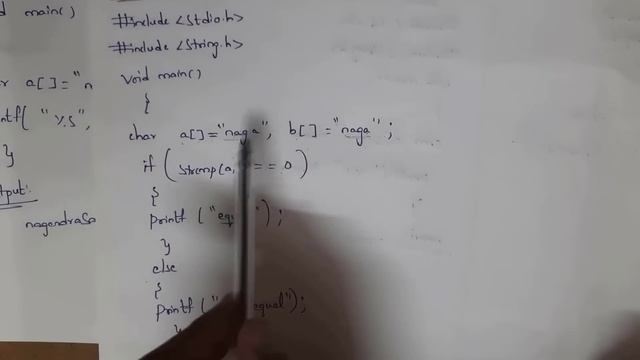 main()
a[]="n
ntf("%s",
}
output:
nagendraSa
#include <stdio.h>
#include <String.h>
Void main()
{
char a[]="naga", b[]="naga";
if(strcmp(a, ==0)
{
printf("equ");
}
else
{
printf(" equal");
}